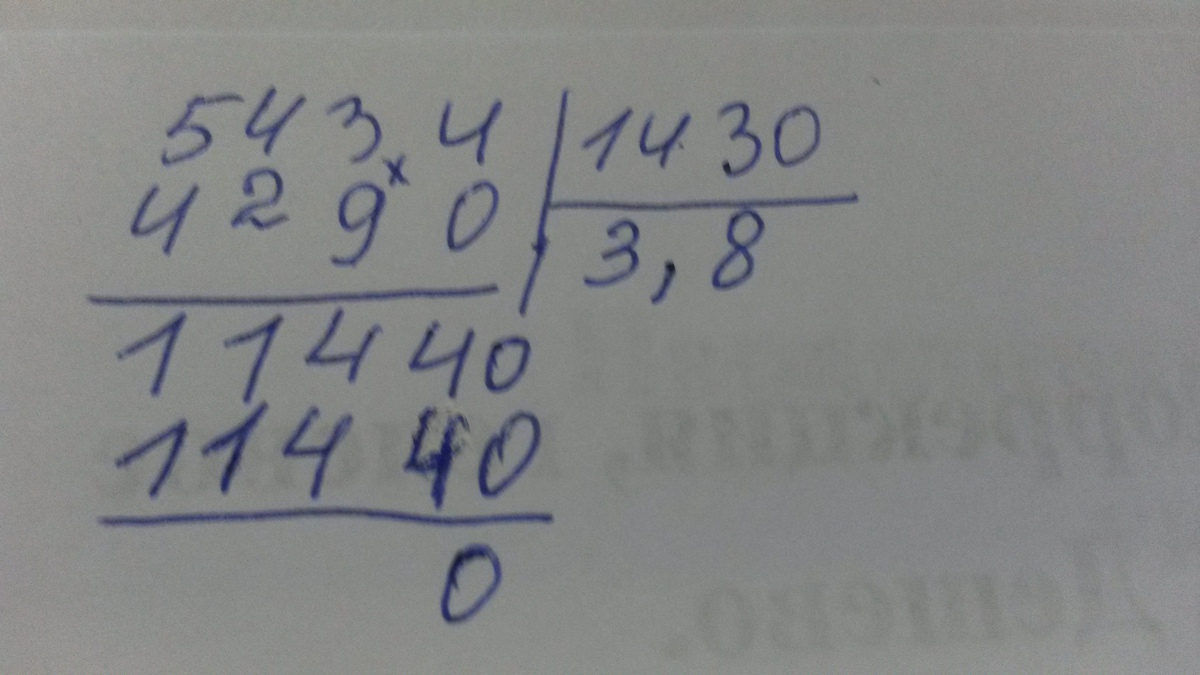 5434 1430
4290 3,8
11440
11440
0